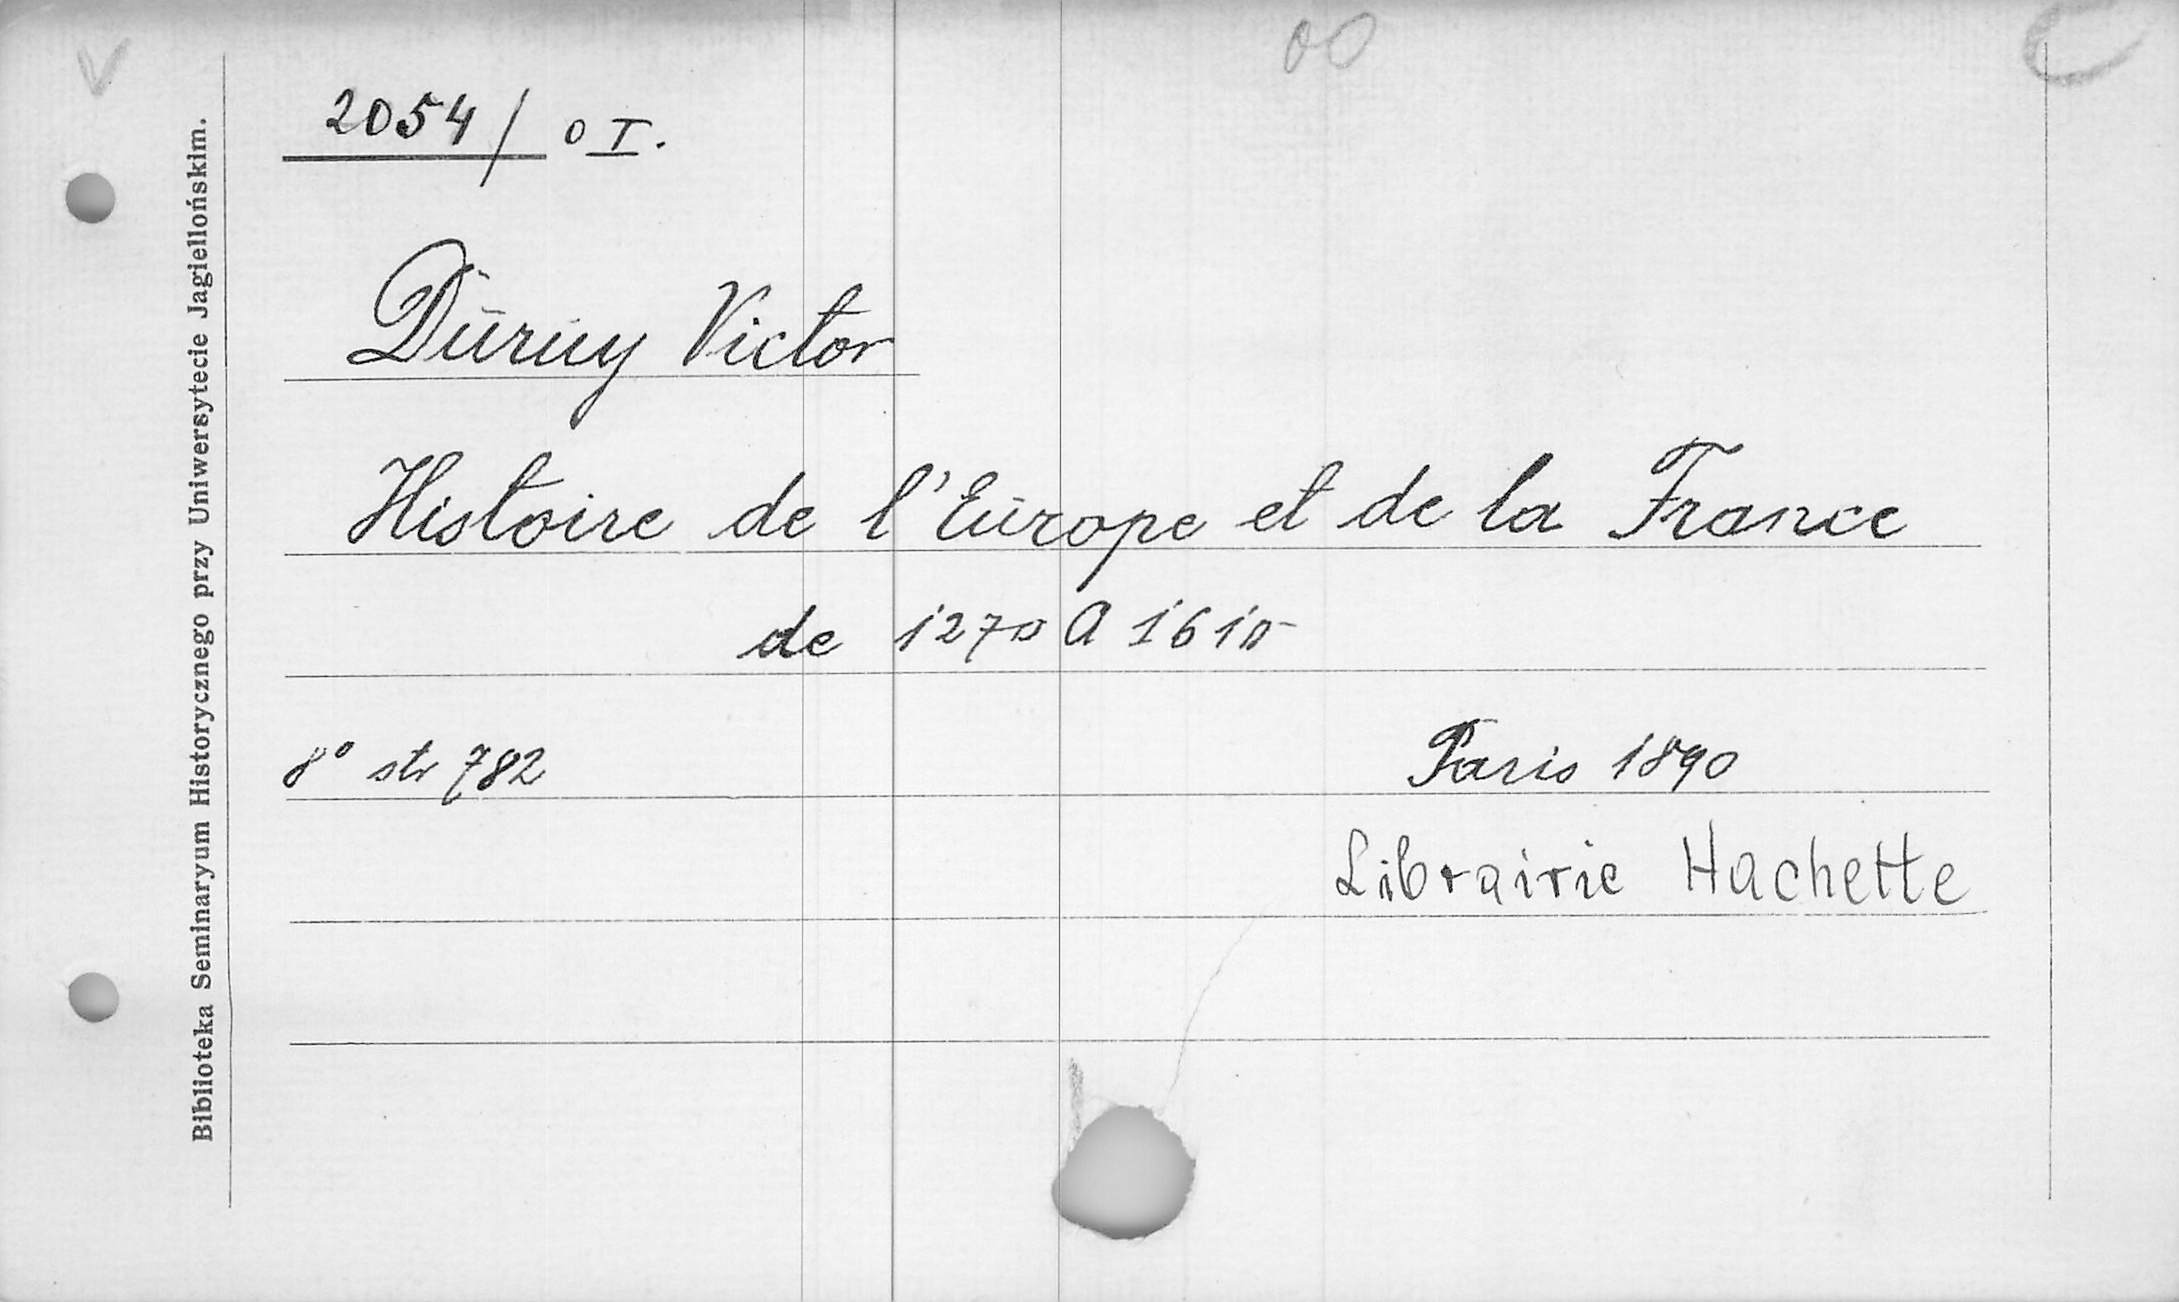 V
00
2054/ 0 I.
Duruy Victor
Histoire de l'Europe et de la France
de 1270 A 1610
8° str 782
Paris 1890
Librairie Hachette
Biblioteka Seminaryum Historycznego przy Uniwersytecie Jagiellońskim.